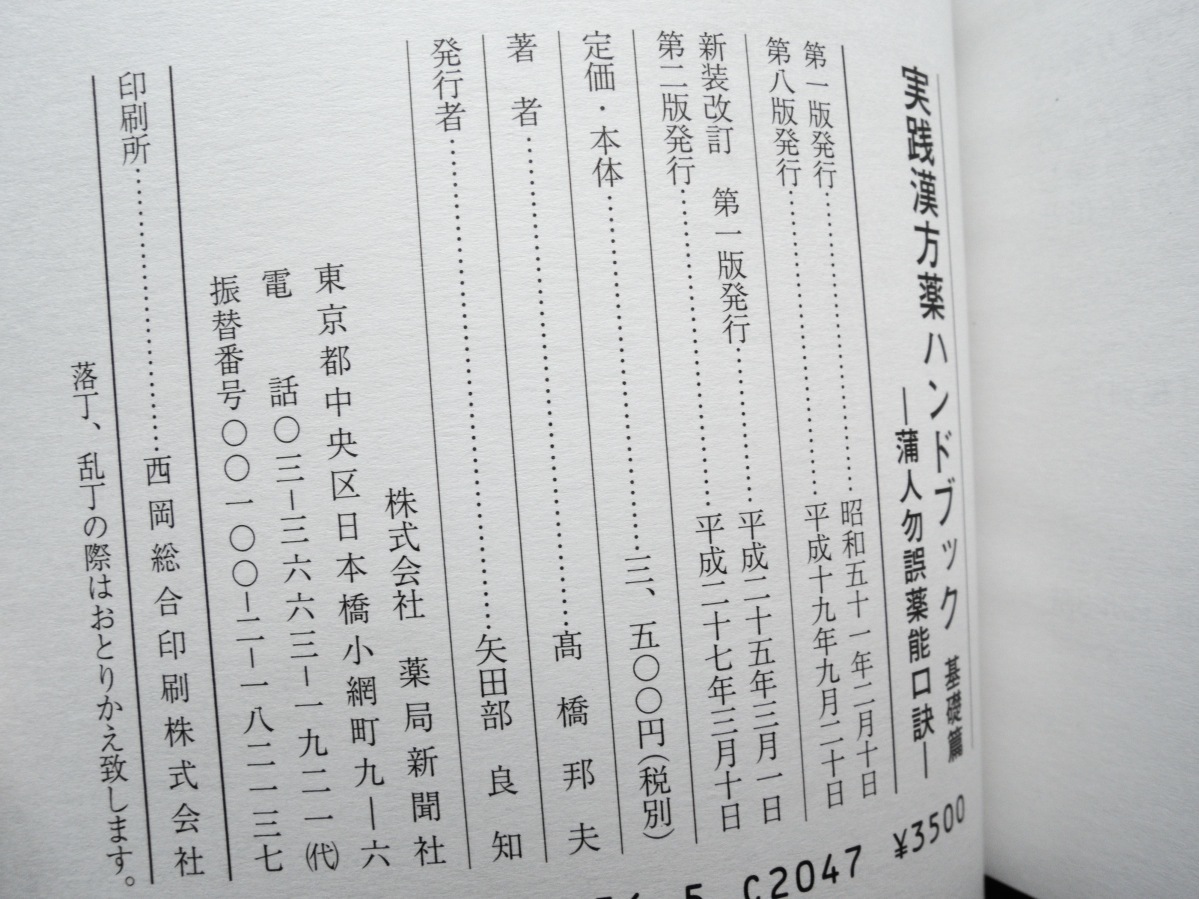 実践漢方薬ハンドブック 基礎篇
―蒲人勿誤薬能口訣―
第一版発行…………………………昭和五十一年二月十日
第八版発行…………………………平成十九年九月二十日
新装改訂 第一版発行……………平成二十五年三月一日
第二版発行…………………………平成二十七年三月十日
定価・本体…………………………三、五〇〇円(税別)
著者…………………………………髙橋邦夫
発行者………………………………矢田部良知
株式会社 薬局新聞社
東京都中央区日本橋小網町九―六
電話〇三―三六六三―一九二一(代)
振替番号〇〇一〇〇―二―一八二一三七
印刷所………………………………西岡総合印刷株式会社
落丁、乱丁の際はおとりかえ致します。
5 C2047 ¥3500